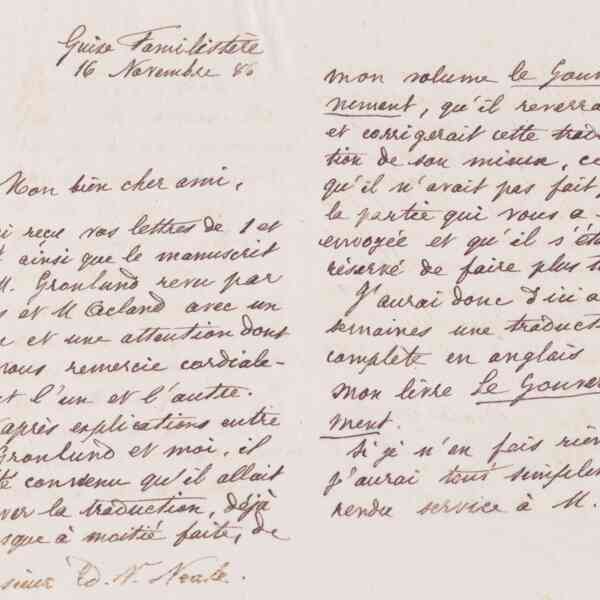 Guise Familistère
16 Novembre 86
Mon bien cher ami,
i reçu vos lettres de 1 et
ainsi que le manuscrit
M. Gronlund revu par
s et M Acland avec un
e et une attention dont
vous remercie cordiale-
t l'un et l'autre.
après explications entre
Gronlund et moi, il
té convenu qu'il allait
ver la traduction, déjà
sque à moitié faite, de
sieur Ed. V. Neale.
mon volume le Gouver
nement, qu'il reverra
et corrigerait cette trad
tion de son mieux, ce
qu'il n'avait pas fait,
la partie qui vous a
envoyée et qu'il s'éta
réservé de faire plus t
J'aurai donc d'ici a
semaines une traduct
complète en anglais
mon livre Le Gouver
ment.
Si je n'en fais rien
j'aurai tout simplem
rendu service à M.